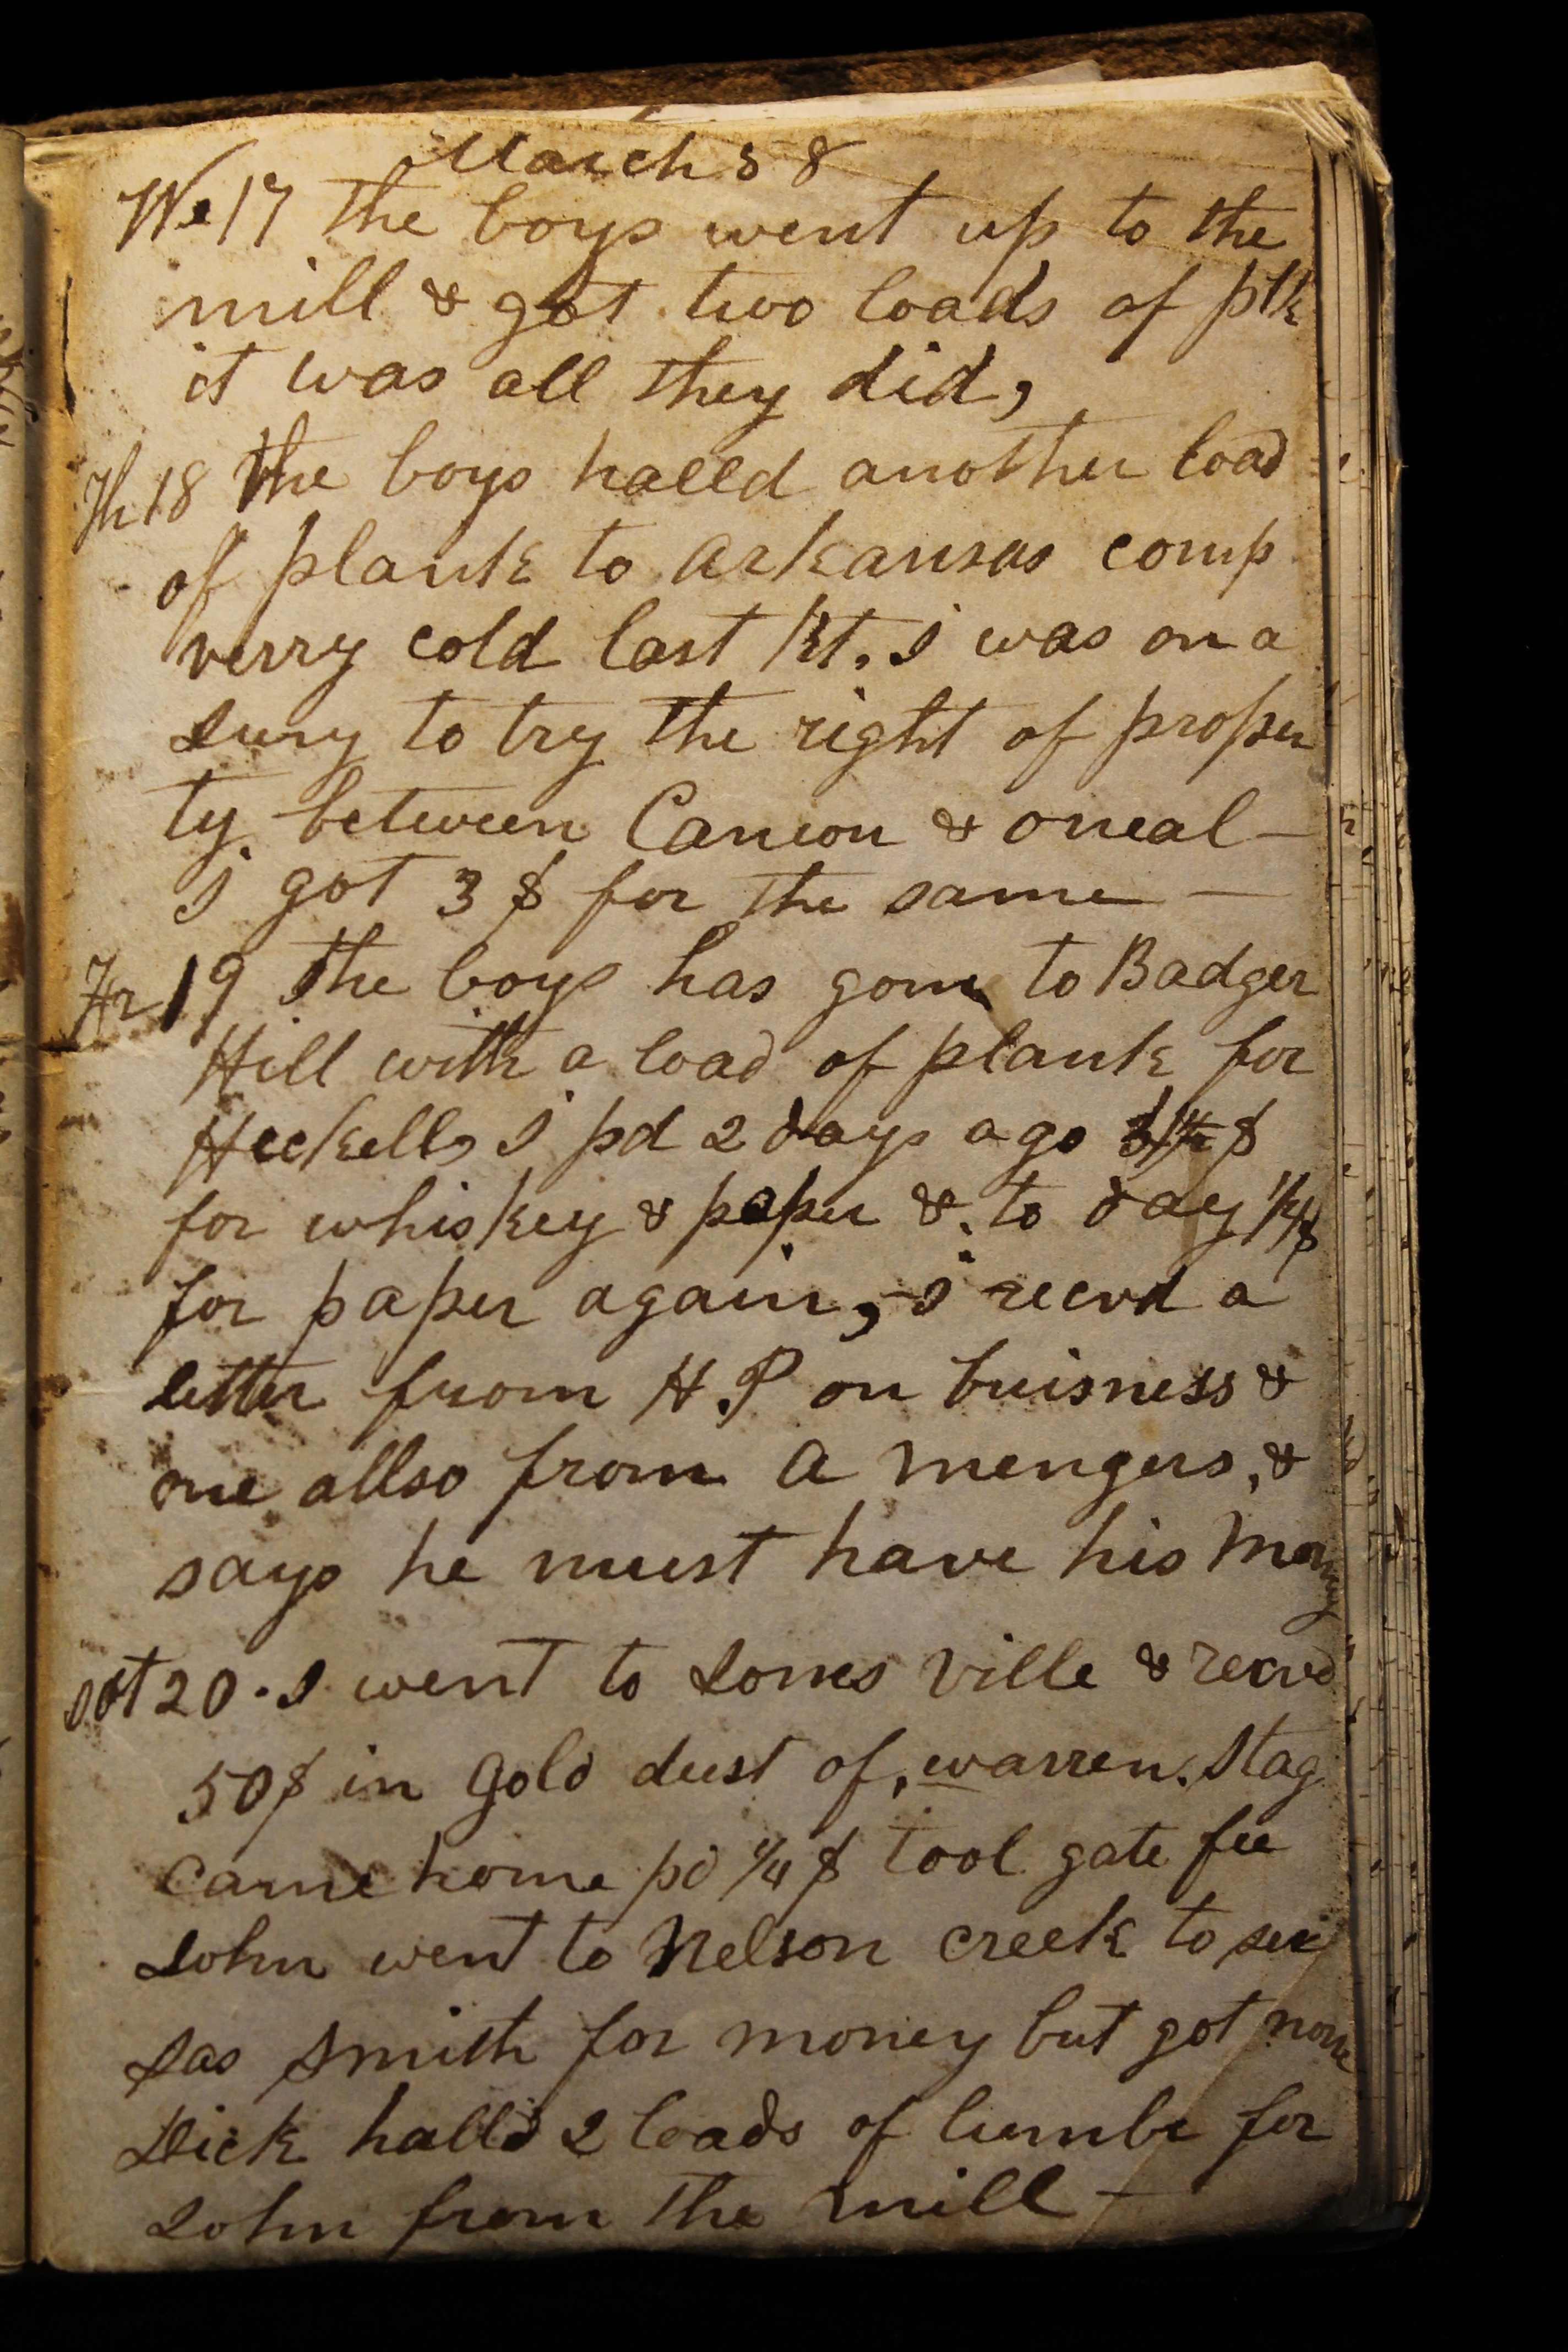 March 58
We 17 the boys went up to the
mill & got two loads of plk
it was all they did,
Th 18 the boys halld another load
of plank to Arkansas comp
verry cold last Nt. I was on a
Jury to try the right of proper
ty between Canion & oneal —
I got 3 $ for the same —
Fr 19 the boys has gone to Badger
Hill with a load of plank for
Heckell, I pd 2 days ago $
for whiskey & paper & to day ½ $
for paper again, I recvd a
letter from H. P on buisness &
one allso from A mengers, &
says he must have his money
Sat 20. I went to Jones ville & recvd
50 $ in Gold dust of, warren. Stag
came home pd ¼ $ tool gate fee
John went to Nelson creek to see
Jas Smith for money but got none
Dick halld 2 loads of lumbr for
John from the mill —